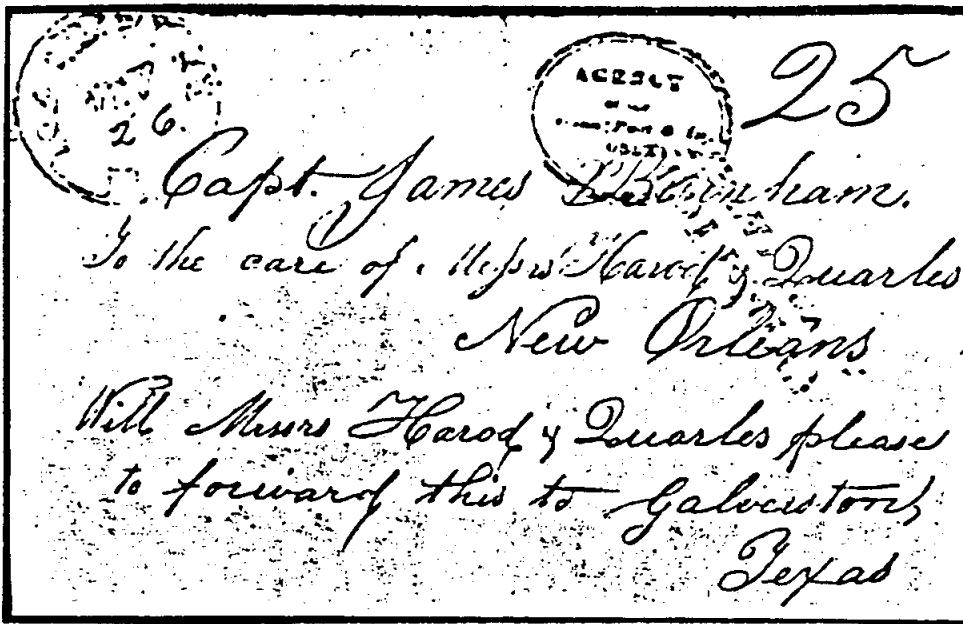 25
26.
AGENCY
Capt. James Burnham.
To the care of Messrs Harod & Quarles
New Orleans
Will Messrs Harod & Quarles please
to forward this to Galveston,
Texas